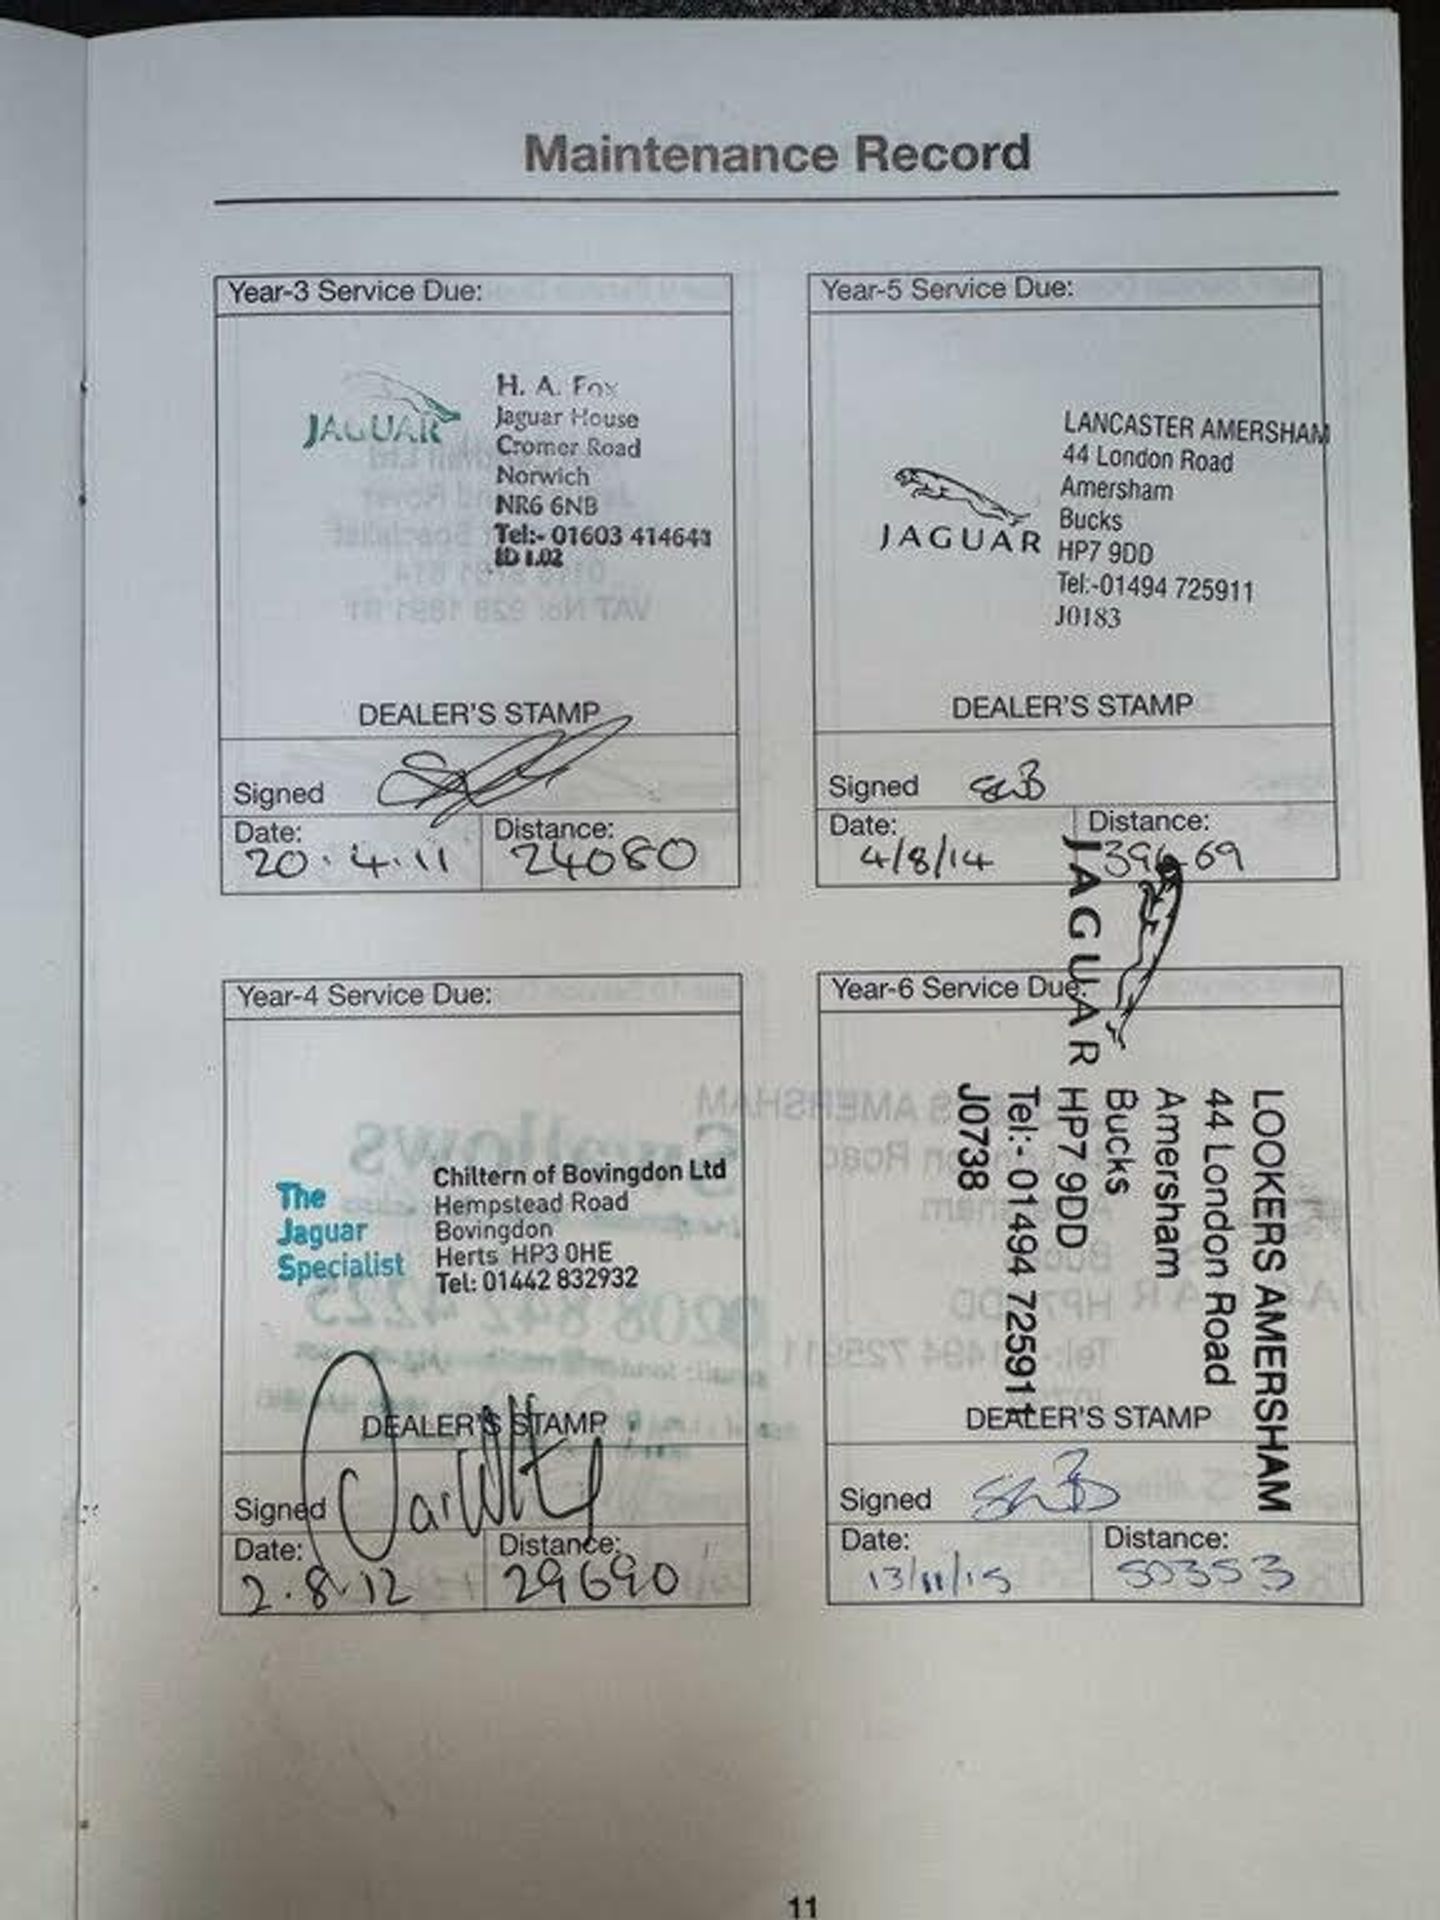 Maintenance Record
Year-3 Service Due:
JAGUAR
H. A. Fox
Jaguar House
Cromer Road
Norwich
NR6 6NB
Tel:- 01603 414641
ID 1.02
DEALER'S STAMP
Signed
Date:
20.4.11
Distance:
24080
Year-5 Service Due:
JAGUAR
LANCASTER AMERSHAM
44 London Road
Amersham
Bucks
HP7 9DD
Tel:-01494 725911
J0183
DEALER'S STAMP
Signed
Date:
4/8/14
Distance:
Year-4 Service Due:
The
Jaguar
Specialist
Chiltern of Bovingdon Ltd
Hempstead Road
Bovingdon
Herts HP3 0HE
Tel: 01442 832932
DEALER'S STAMP
Signed
Date:
2.8.12
Distance:
29690
Year-6 Service Due:
JAGUAR
LOOKERS AMERSHAM
44 London Road
Amersham
Bucks
HP7 9DD
Tel:- 01494 725911
J0738
DEALER'S STAMP
Signed
Date:
13/11/15
Distance:
50353
11